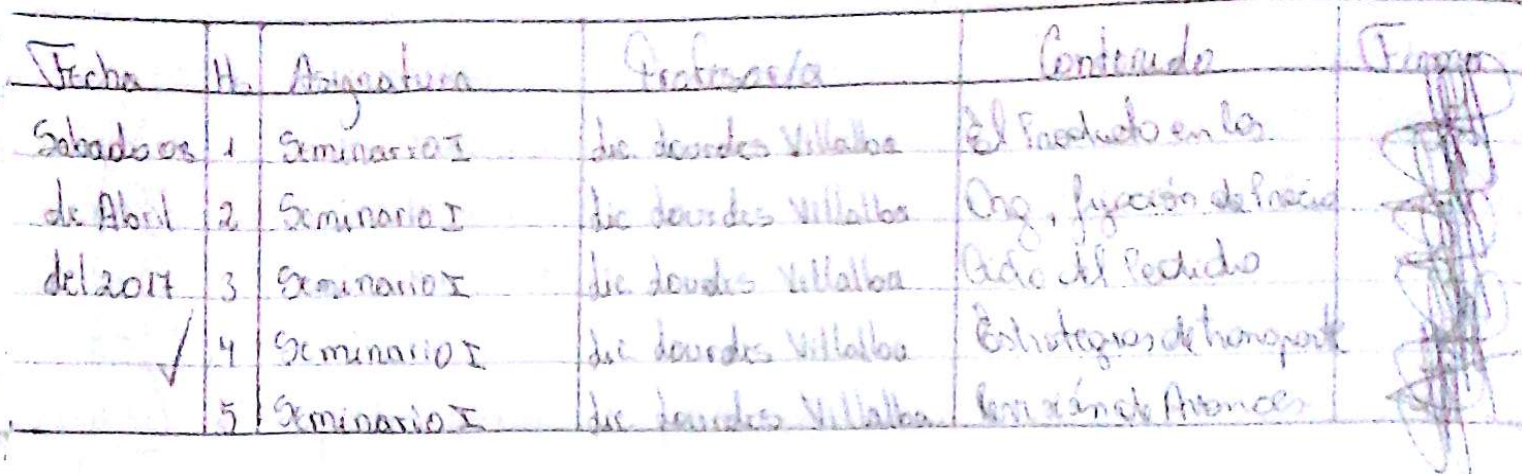 Fecha H. Asignatura Profesor/a Contenido Firma
Sabado 08 1 Seminario I Lic Lourdes Villalba El Producto en los
de Abril 2 Seminario I Lic Lourdes Villalba Org, fijación de Precio
del 2017 3 Seminario I Lic Lourdes Villalba Ciclo del Pedido
4 Seminario I Lic Lourdes Villalba Estrategias de transporte
5 Seminario I Lic Lourdes Villalba Revisión de Avances